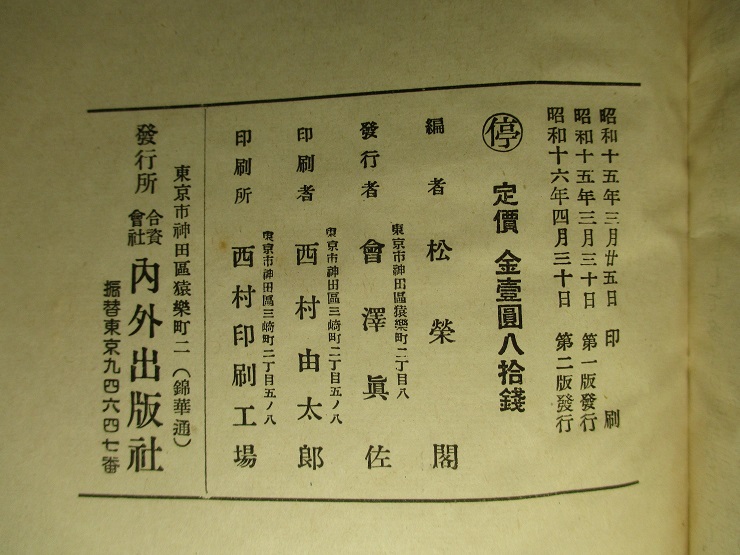 昭和十五年三月廿五日 印刷
昭和十五年三月三十日 第一版發行
昭和十六年四月三十日 第二版發行
停 定價 金壹圓八拾錢
編者 松榮閣
東京市神田區猿樂町二丁目八
發行者 會澤眞佐
東京市神田區三崎町二丁目五ノ八
印刷者 西村由太郎
東京市神田區三崎町二丁目五ノ八
印刷所 西村印刷工場
東京市神田區猿樂町二(錦華通)
發行所 合資會社 內外出版社
振替東京九四六四七番